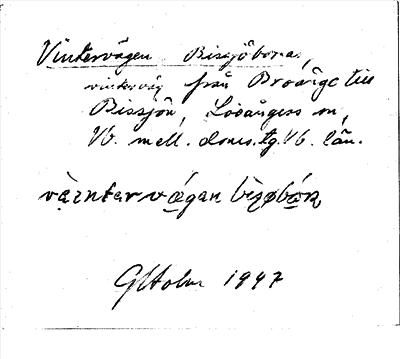 Vintervägen Bissjöbona,
vinterväg från Broänge till
Bissjön, Lövångers sn,
Vb. mell. doms.tg. Vb. län.
vä̀ɪntərvǻgan bìsøbón
GHolm 1947